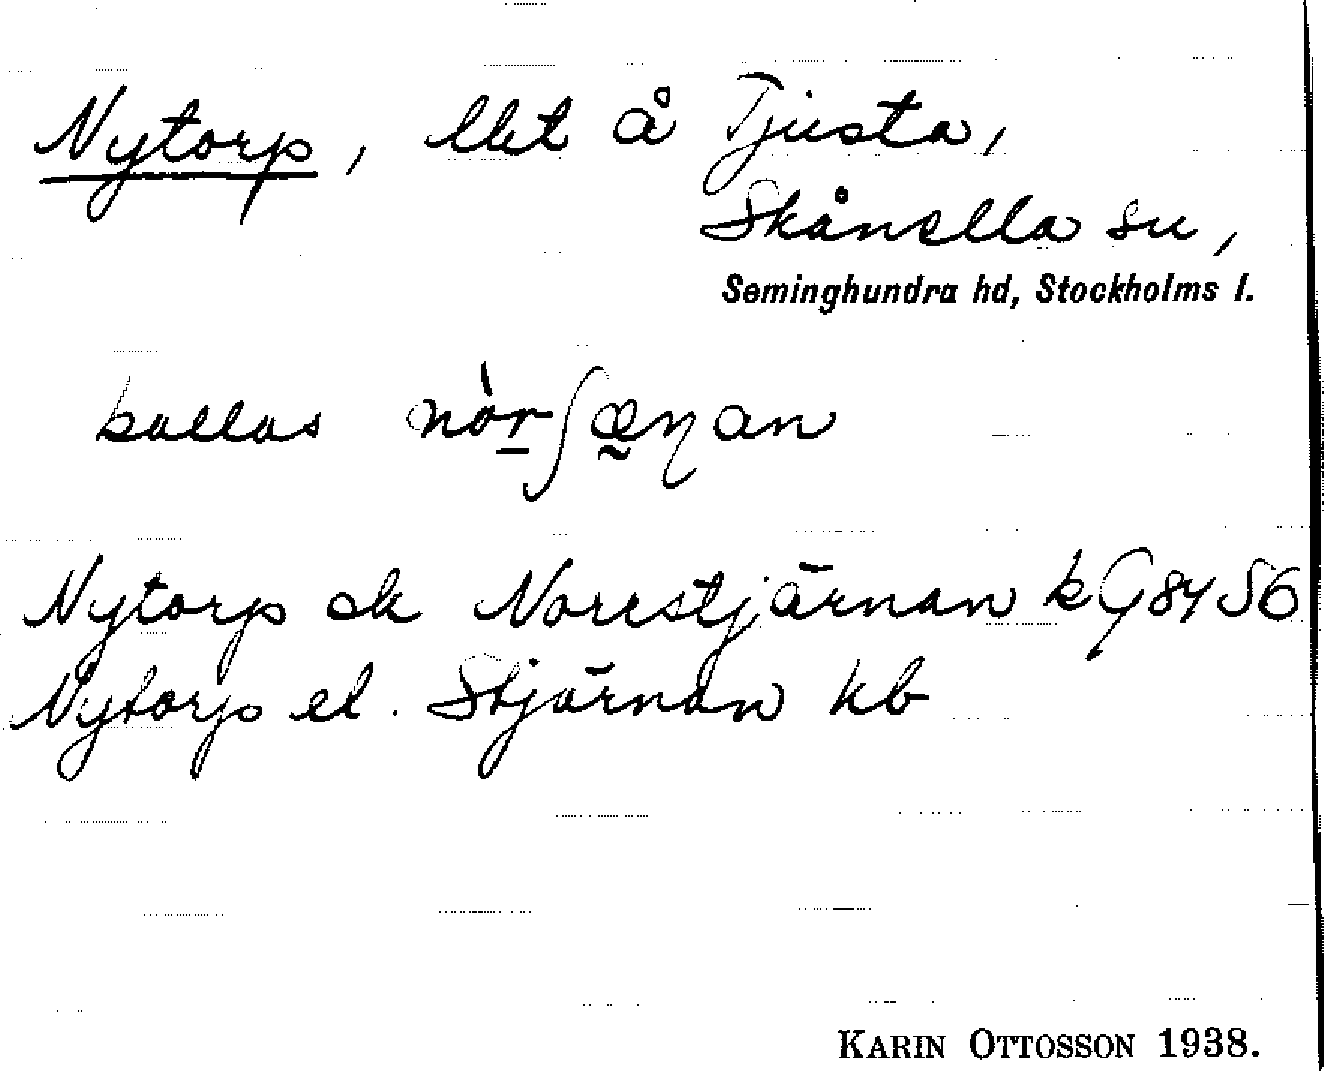 Nytorp, llet å Tjusta,
Skånella sn,
Seminghundra hd, Stockholms l.
kallas nòrʃæŋan
Nytorp ok Norrstjärnan k G 84 S6
Nytorp el. Stjärnan kb
KARIN OTTOSSON 1938.